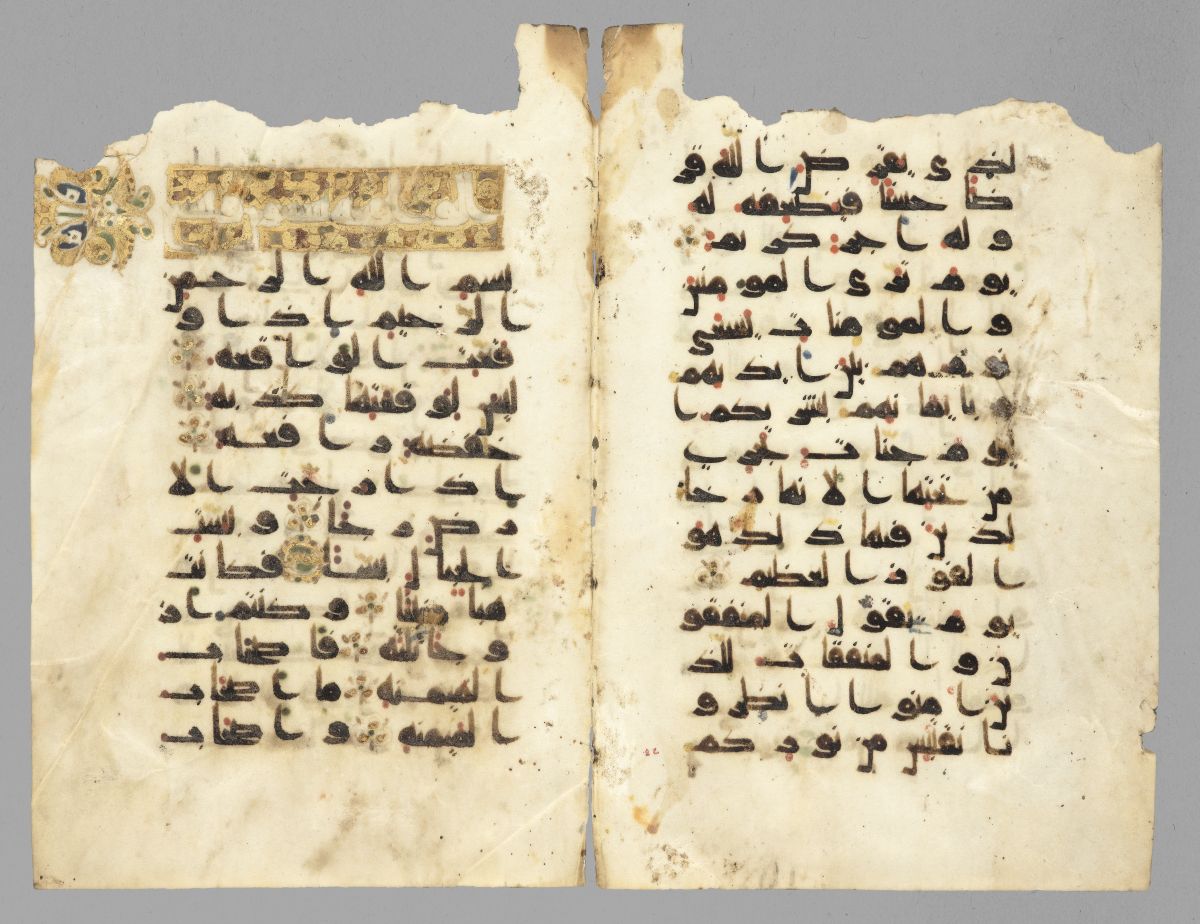 لذى يقرض الله قر
ضا حسنا فيضعفه له
و له اجر كريم
يوم ترى المومنين
و المومنات يسعى
نورهم بين ايديهم
و بايمانهم بشريكم ا
ليوم جنات تجرى
من تحتها الانهار خا
لدين فيها ذلك هو
الفوز العظيم
يوم يقول المنفقو
ن و المنفقات للذ
ين امنوا انظرو
نا نقتبس من نوركم
بسم الله الرحمن
الرحيم اذا و
قعت الواقعه
ليس لوقعتها كذبه
خفضه رافعه
اذا رجت الا
رض رجا و بست
الجبال بسا فكانت
هبا منبثا و كنتم از
وجا ثلثه فاصحاب
الميمنه ما اصحاب
الميمنه و اصحاب